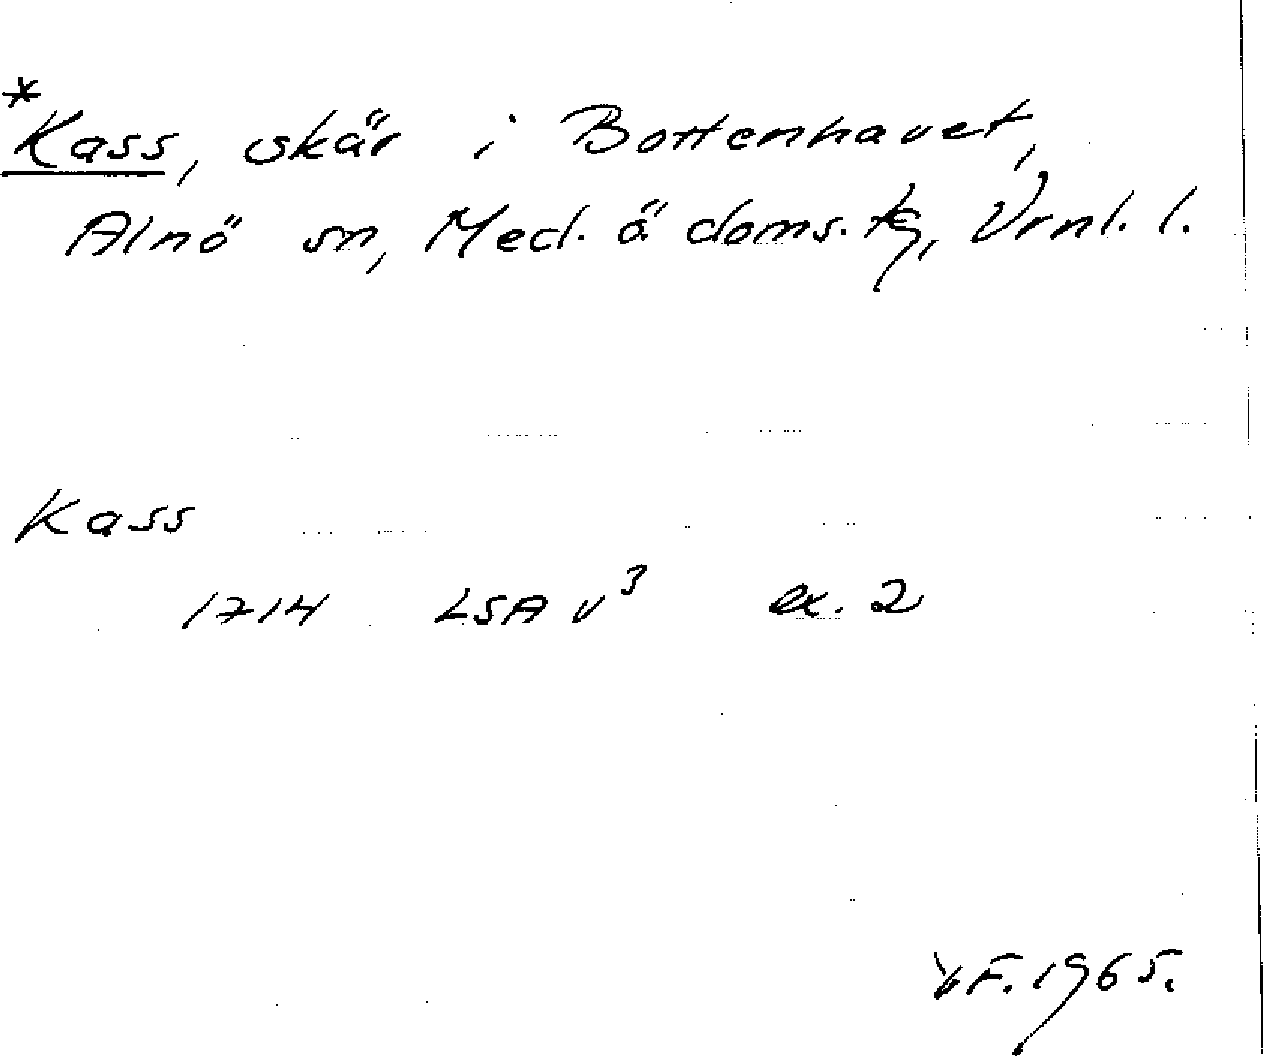 *Kass, skär i Bottenhavet,
Alnö sn, Med. ö doms. tg, Vrnl. l.
Kass
1714 LSA v³ ex. 2
F. 1965.